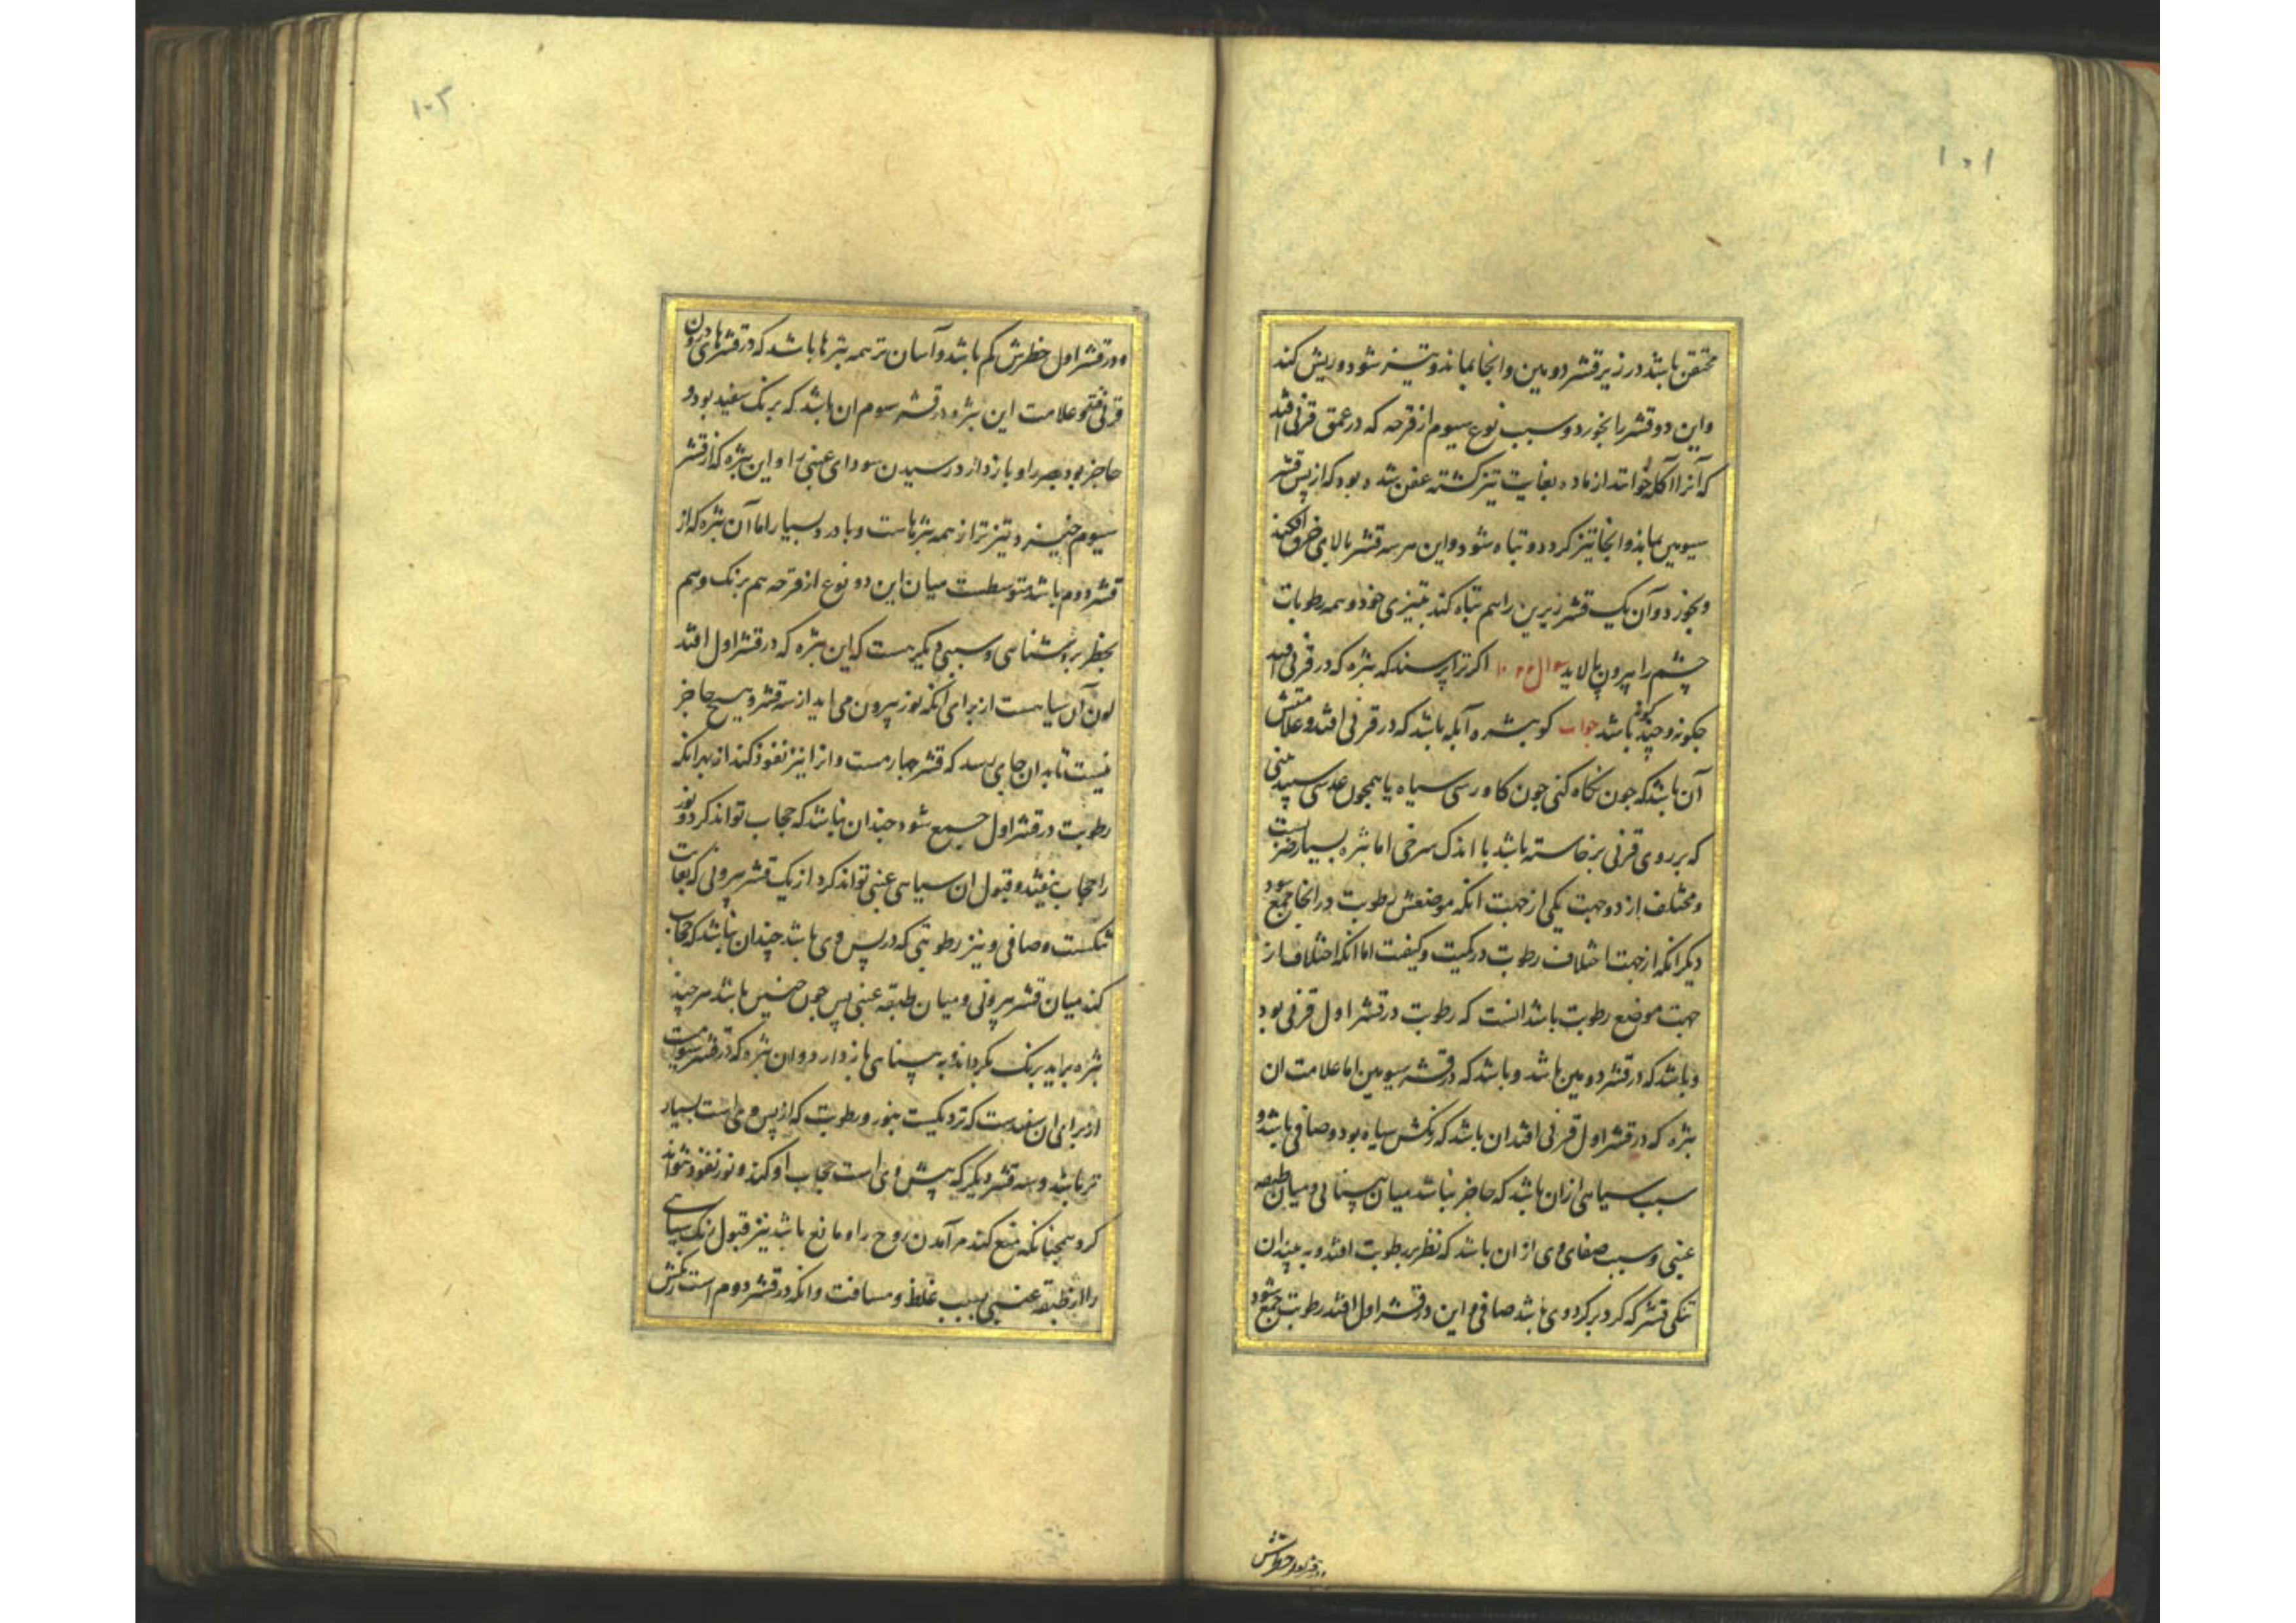 ۱۰۱
محتقن باشد در زیر قشر دومین وانجا بماند وتیز شود وریش کند
واین دو قشر را بخورد وسبب نوع سیوم از قرحه که در عمق قرنی افتد
که آنرا آکله خوانند از ماده بغایت تیز کشته عفن شده بود که از پس قشر
سیومین بماند وانجا تیز کردد وتباه شود واین هر سه قشر بالای
وبخورد وآن یک قشر زیرین را هم تباه کند بتیزی خود وهمه رطوبات
چشم را بیرون پالاید سوال اکر ترا پرسند که بثره که در قرنی افتد
چکونه وچند کونه باشد جواب کو بثره آبله باشد که در قرنی افتد وعلامتش
آن باشد که جون نکاه کنی جون کاورسی سیاه یا همچون عدسی سپید بینی
که بر روی قرنی برخاسته باشد با اندک سرخی اما بثره بسیار
ومختلف از دو جهت یکی از جهت انکه موضعش رطوبت در انجا جمع شود
دیکر انکه از جهت اختلاف رطوبت در کمیت وکیفیت اما انکه اختلاف از
جهت موضع رطوبت باشد انست که رطوبت در قشر اول قرنی بود
وباشد که در قشر دومین باشد وباشد که در قشر سیومین اما علامت ان
بثره که در قشر اول قرنی افتد ان باشد که رنکش سیاه بود وصافی باشد و
سبب سیاهی از ان باشد که حاجز نباشد میان بینائی ومیان طبقه
عنبی وسبب صفای وی از ان باشد که نظر بر رطوبت افتد وبه بیند ان
تنکی قشر که کرد بر کرد وی باشد صافی واین در قشر اول افتد رطوبت جمع شود
ودر قشر اول خطرش
۱۰۲
ودر قشر اول خطرش کم باشد وآسان تر همه بثرها باشد که در قشرهای درون
قرنی افتد وعلامت این بثره در قشر سوم ان باشد که برنک سفید بود و
حاجز بود بصر را وباز دارد رسیدن سودای عنبی را واین بثره که از قشر
سیوم خیزد وتیزتر از همه بثرهاست وبا درد بسیار اما آن بثره که از
قشر دوم باشد متوسطست میان این دو نوع از قرحه هم برنک وهم
بخطر بر وشناسی وسببی دیکر هست که این بثره که در قشر اول افتد
لون آن سیاهست از برای انکه نور بیرون می اید از سه قشر وهیچ حاجز
نیست تا بدان جای رسد که قشر چهارمست وانرا نیز نفوذ کند از بهر انکه
رطوبت در قشر اول جمع شود چندان نباشد که حجاب تواند کرد ونور
را حجاب نیفتد وقبول ان سیاهی عنبی تواند کرد از یک قشر بیرونی که بغایت
تنکست وصافی ونیز رطوبتی که در پس وی باشد چندان نباشد که حجاب
کند میان قشر بیرونی ومیان طبقه عنبی پس جون چنین باشد هر چند
بثره براید برنک بکرداند وبه بینائی باز دارد وان بثره که در قشر سیومست
از برای ان سفیدست که نزدیکست بنور ورطوبت که از پس وی است بسیار
تر باشد وسه قشر دیکر که پیش وی است حجاب او کند ونور نفوذ نتواند
کرد وهمچنانکه منع کند بر آمدن روح را ومانع باشد نیز قبول رنک سیاهی
را از طبقه عنبی بسبب غلظ ومسافت وانکه در قشر دوم است رنکش